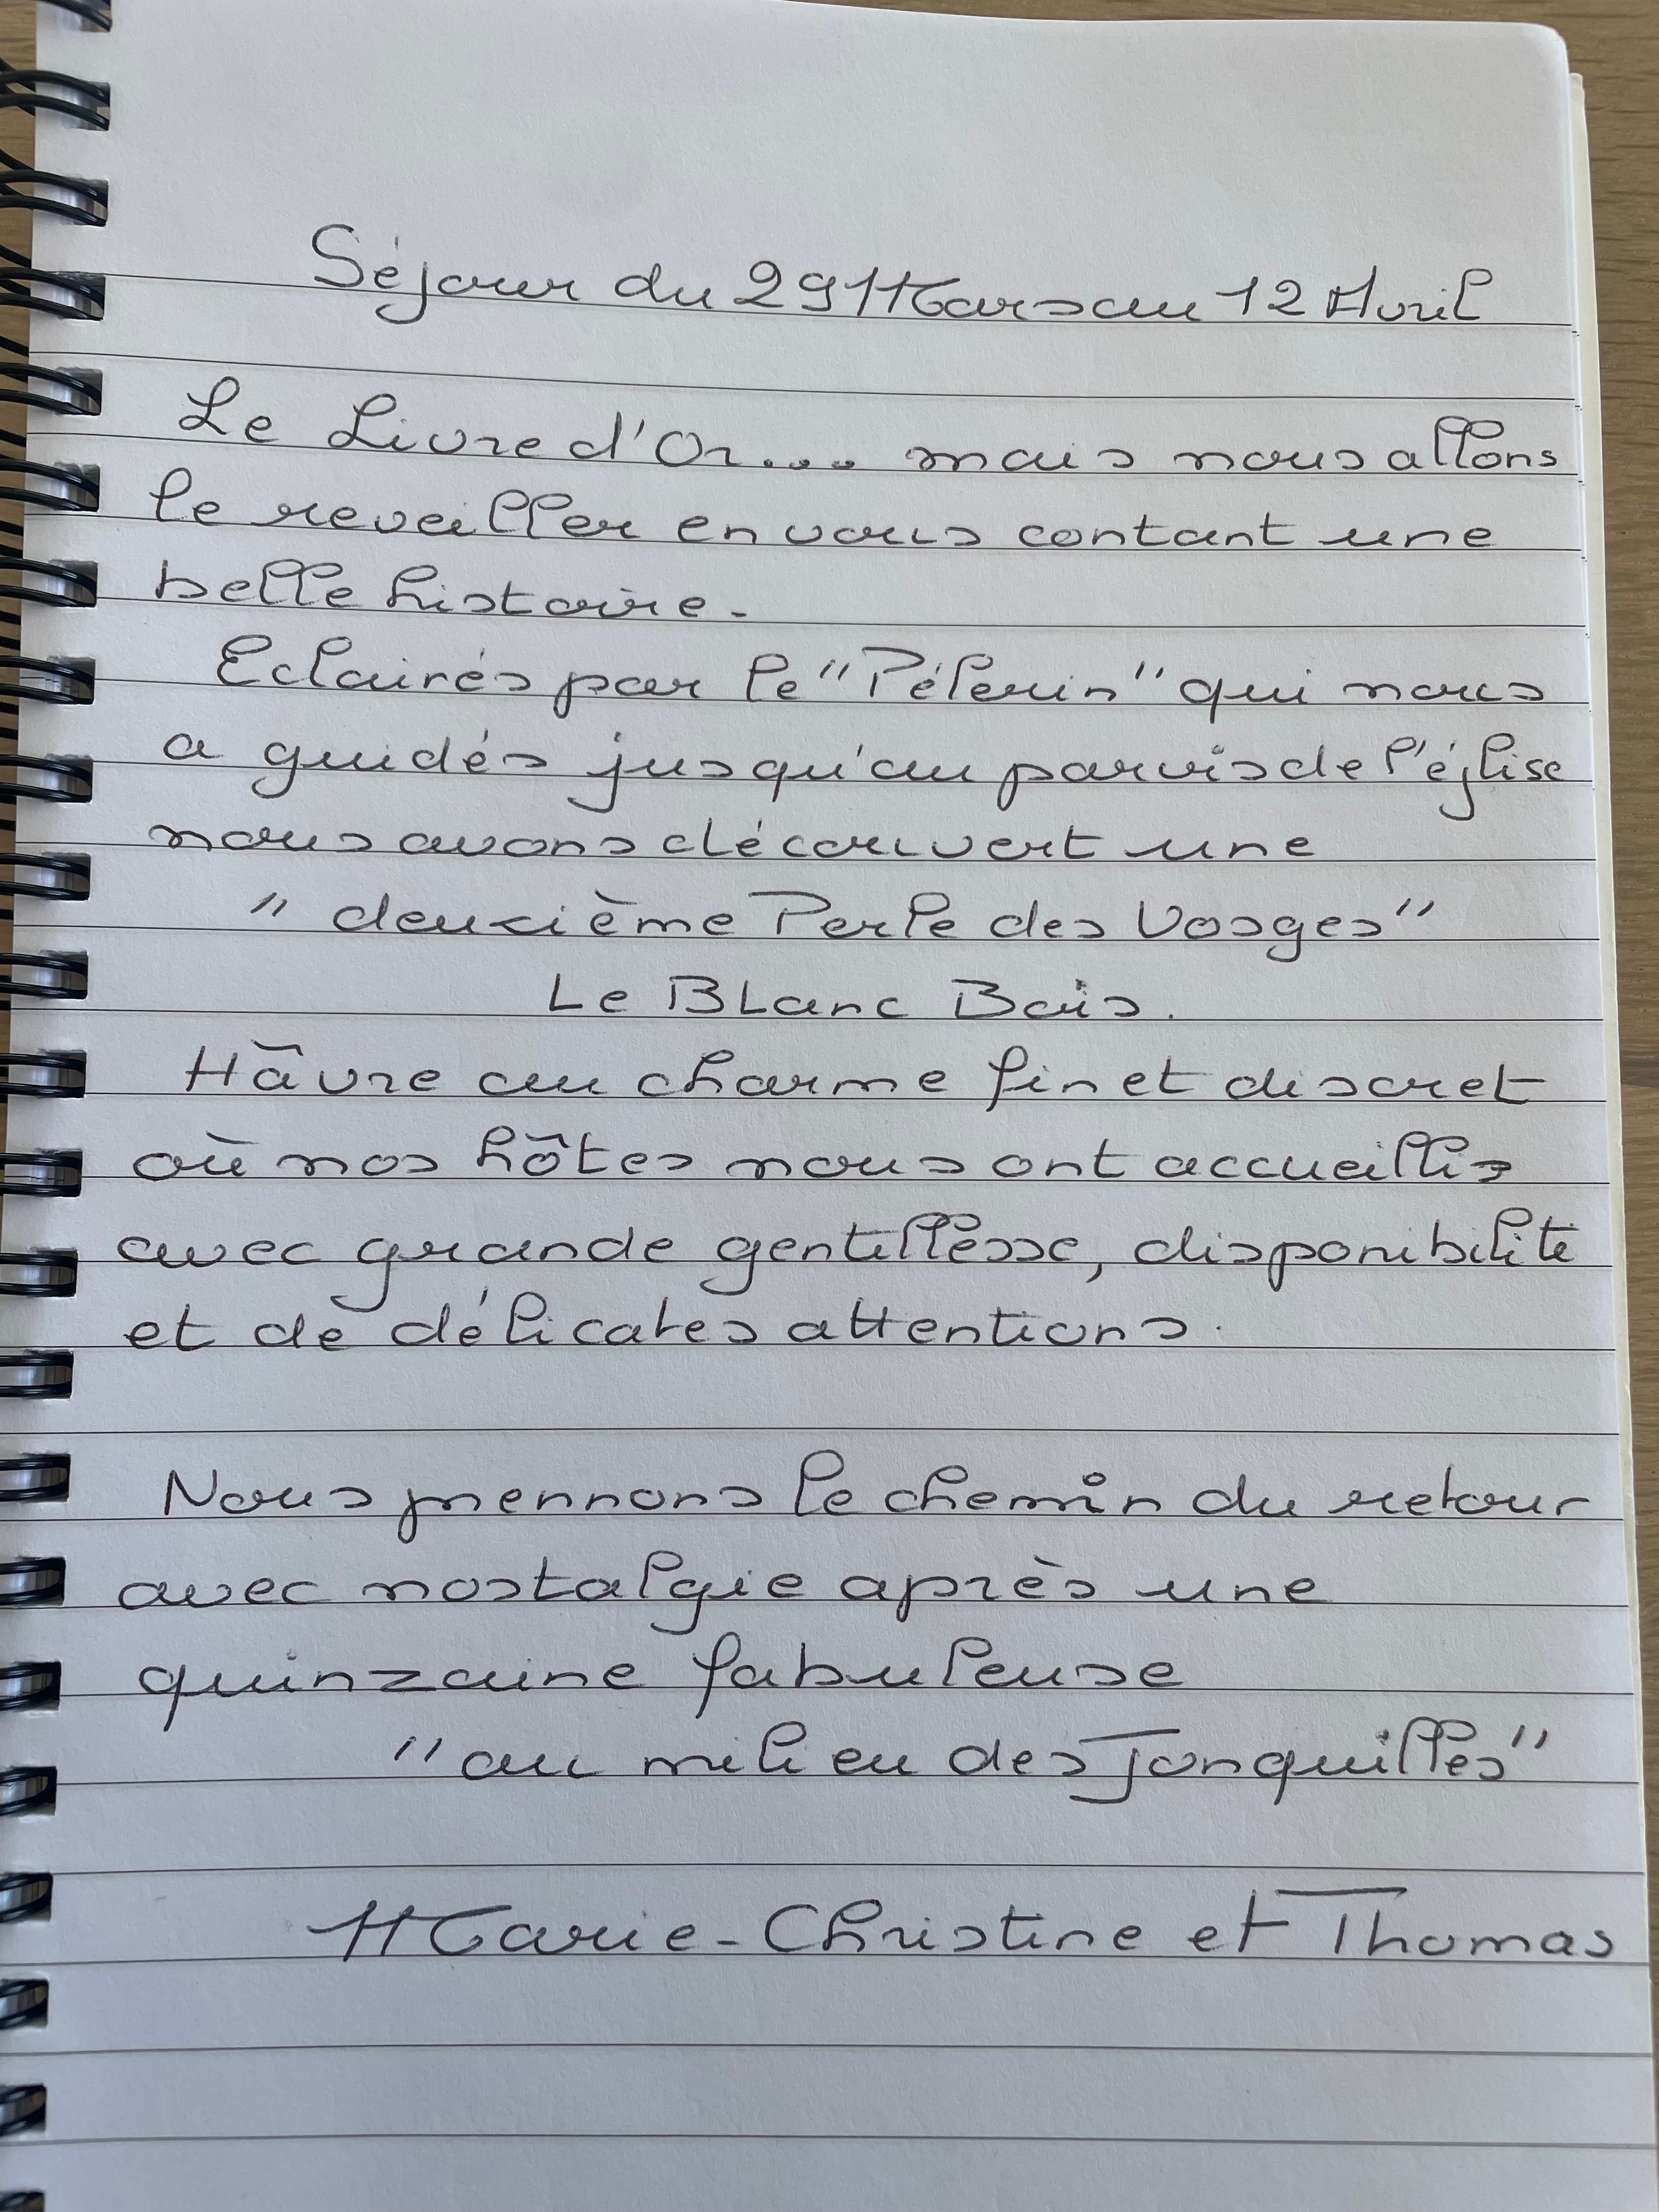 Séjour du 29 Mars au 12 Avril
Le Livre d'Or... mais nous allons
le reveiller en vous contant une
belle histoire.
Eclairés par le "Pélerin" qui nous
a guidés jusqu'au parvis de l'église
nous avons découvert une
"deuxième Perle des Vosges"
Le Blanc Bois.
Hâvre au charme fin et discret
où nos hôtes nous ont accueillis
avec grande gentillesse, disponibilité
et de délicates attentions.
Nous prennons le chemin du retour
avec nostalgie après une
quinzaine fabuleuse
"au milieu des Jonquilles"
Marie-Christine et Thomas